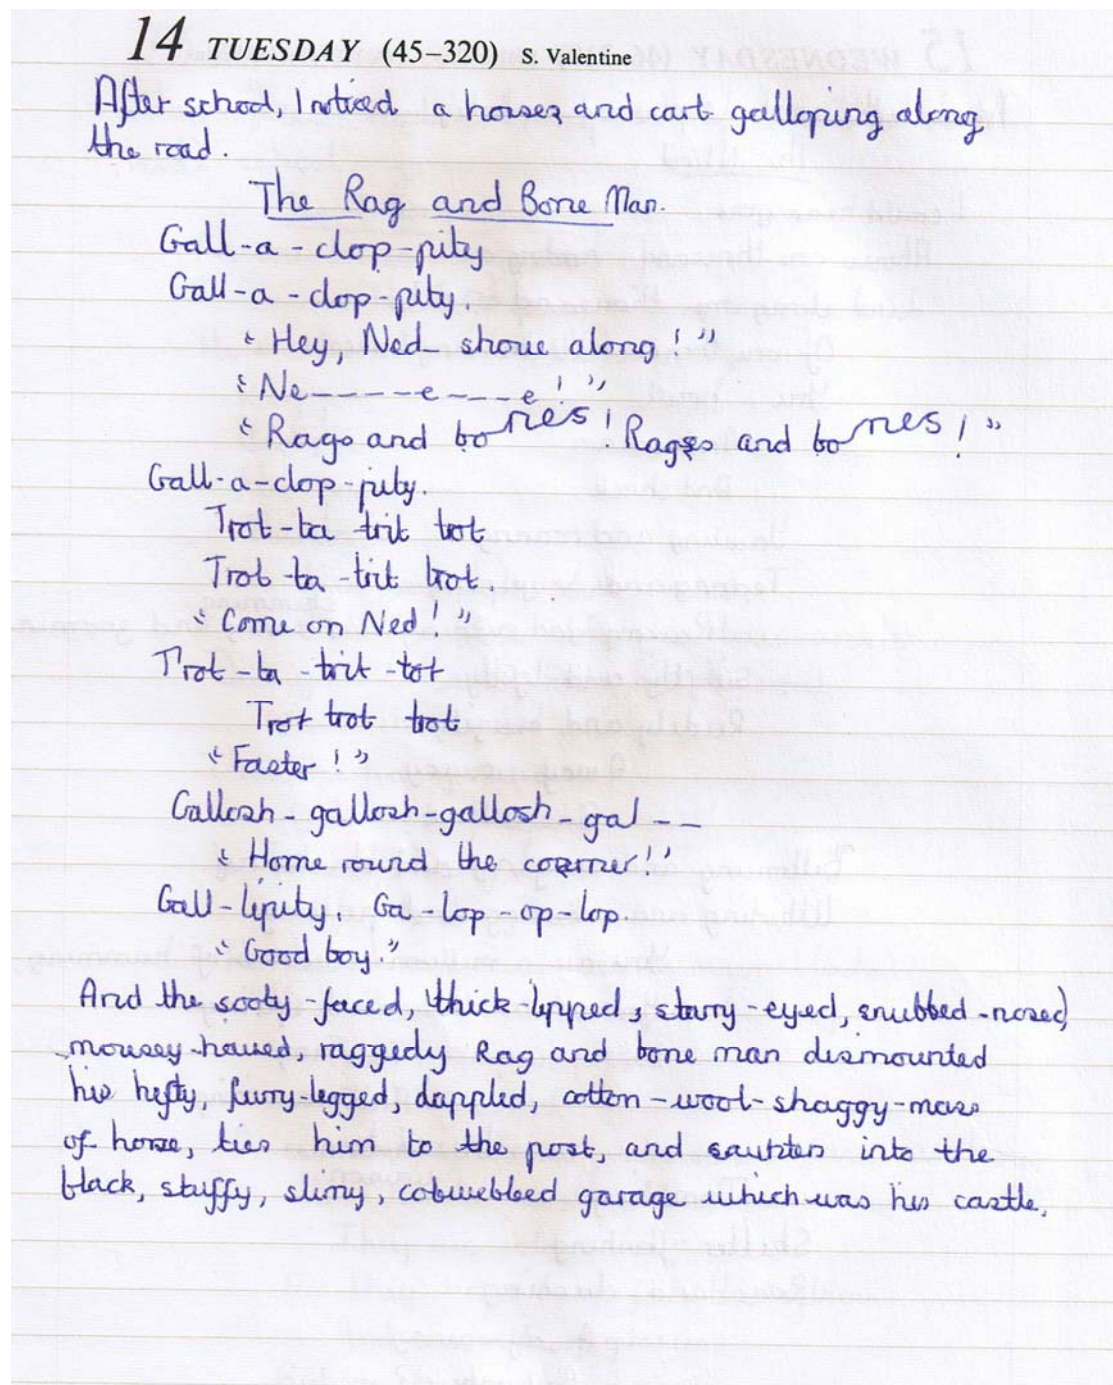 14 TUESDAY (45–320) S. Valentine
After school, I noticed a horse and cart galloping along
the road.
The Rag and Bone Man.
Gall-a-clop-pity
Gall-a-clop-pity.
"Hey, Ned- shove along!"
"Ne-----e---e!"
"Rags and bones! Rags and bones!"
Gall-a-clop-pity.
Trot-ta trit trot
Trot-ta-trit trot.
"Come on Ned!"
Trot-ta-trit-tot
Trot trot trot
"Faster!"
Gallosh-gallosh-gallosh-gal--
"Home round the corner!"
Gall-lipity. Ga-lop-op-lop.
"Good boy."
And the sooty-faced, thick-lipped, starry-eyed, snubbed-nosed,
mousey-haired, raggedy Rag and bone man dismounted
his hefty, furry-legged, dappled, cotton-wool-shaggy-mass
of horse, ties him to the post, and into the
black, stuffy, slimy, cobwebbed garage which was his castle.